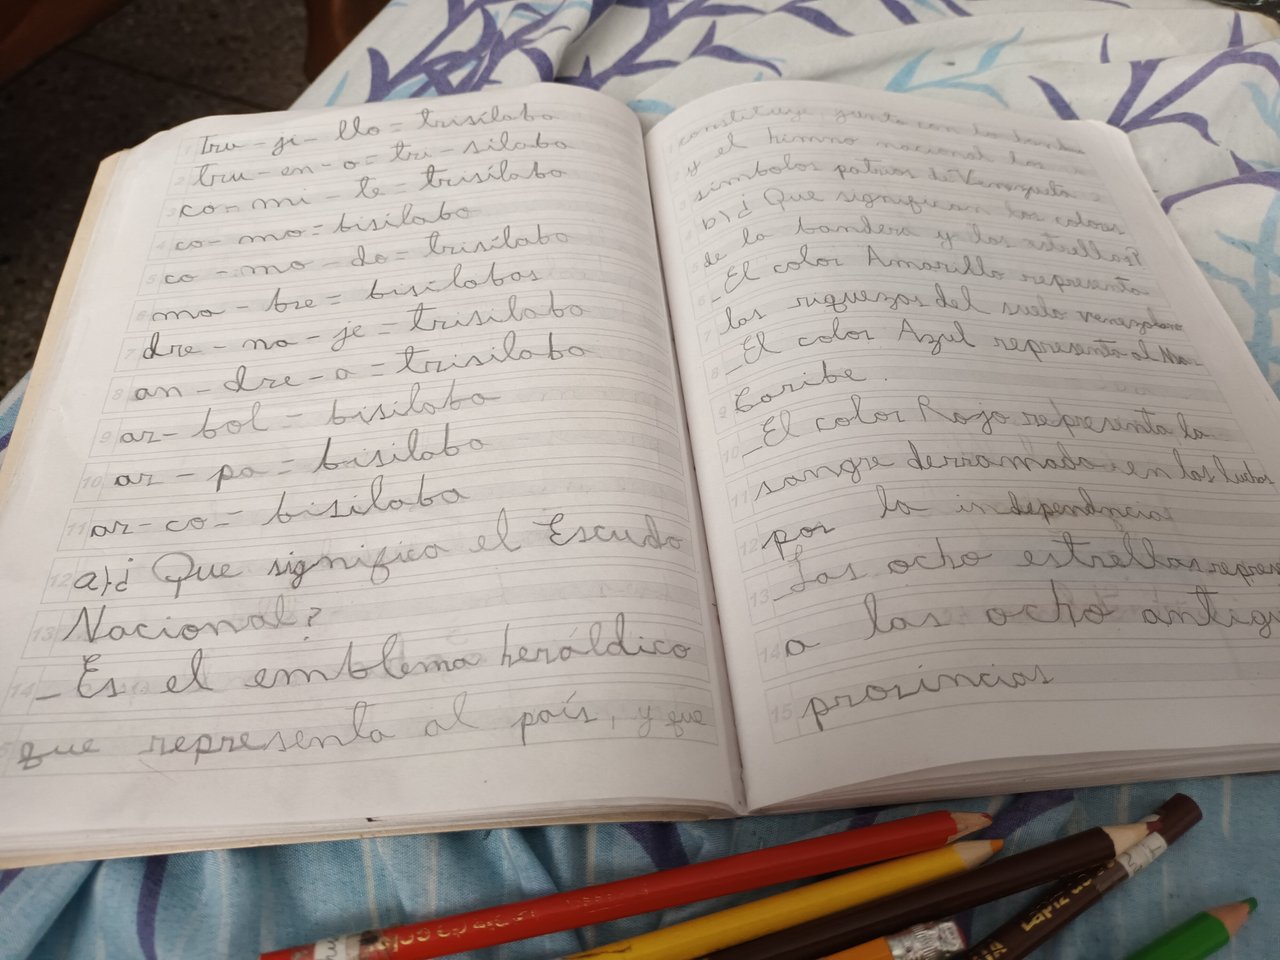 Tru - ji - llo = trisílabo
tru - en - o = tri - silabo
co - mi - te = trisílabo
co - mo = bisilabo
co - mo - do = trisílabo
ma - dre = bisilabas
dre - na - je = trisilabo
an - dre - a = trisilabo
ar - bol = bisilabo
ar - pa = bisilabo
ar - co = bisilaba
a) ¿ Que significa el Escudo
Nacional?
- Es el emblema heráldico
que representa al país, y que
constituye, junto con la bandera
y el himno nacional los
simbolos patrios de Venezuela.
b) ¿ Que significan los colores
de la bandera y las estrellas?
- El color Amarillo representa
las riquezas del suelo venezolano
- El color Azul representa al Mar
Caribe.
- El color Rojo representa la
sangre derramada en las luchas
por la independncia
- Las ocho estrellas represe
a las ocho antigu
provincias
1
2
3
4
5
6
7
8
9
10
11
12
13
14
5
6
7
8
9
10
11
12
13
14
15